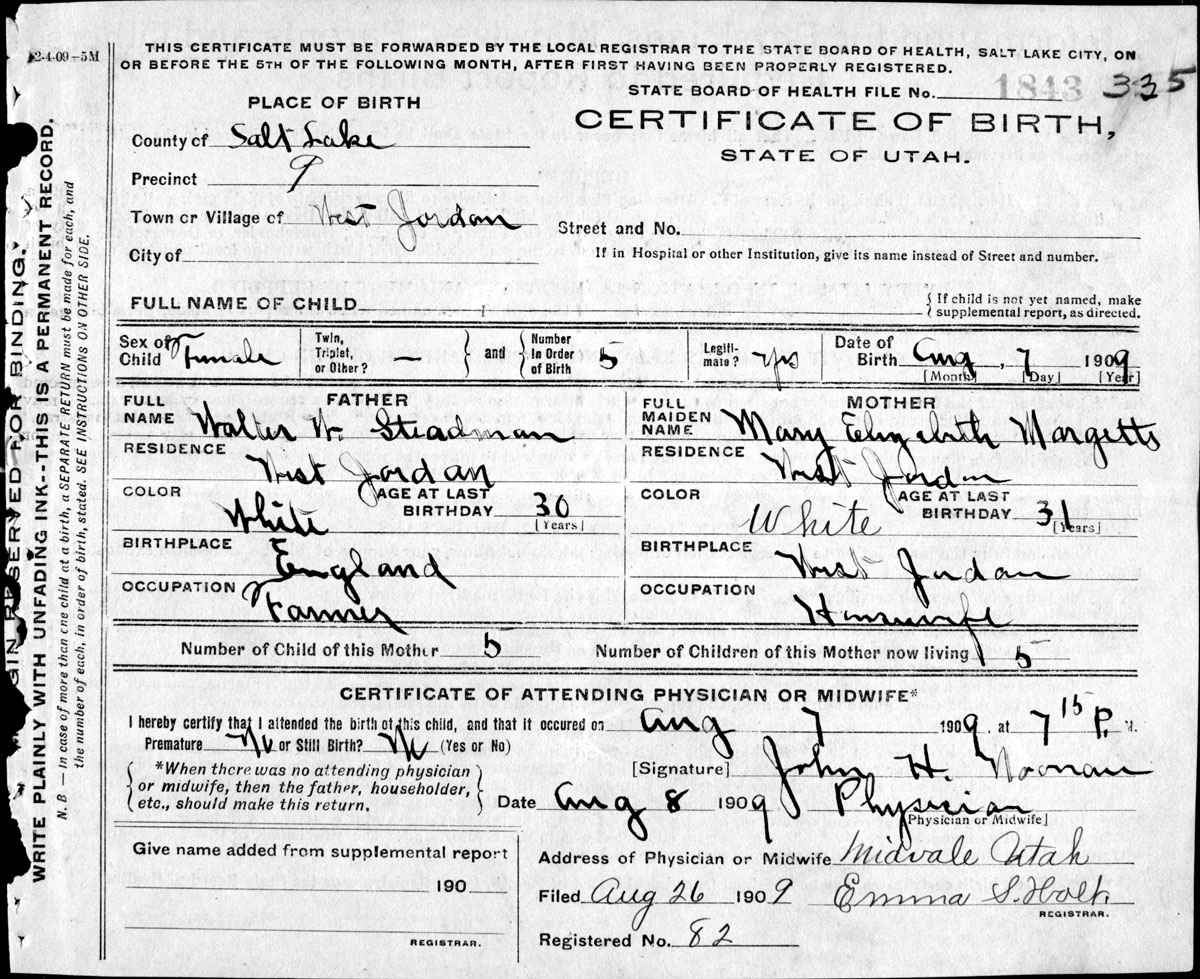 2-4-09-5M
THIS CERTIFICATE MUST BE FORWARDED BY THE LOCAL REGISTRAR TO THE STATE BOARD OF HEALTH, SALT LAKE CITY, ON
OR BEFORE THE 5TH OF THE FOLLOWING MONTH, AFTER FIRST HAVING BEEN PROPERLY REGISTERED.
STATE BOARD OF HEALTH FILE No. 1843 335
PLACE OF BIRTH
CERTIFICATE OF BIRTH,
STATE OF UTAH.
County of Salt Lake
Precinct 9
Town or Village of West Jordan
Street and No.
City of
If in Hospital or other Institution, give its name instead of Street and number.
FULL NAME OF CHILD
{ If child is not yet named, make
supplemental report, as directed.
Sex of Child Female
Twin, Triplet, or Other? } and { Number In Order of Birth 5
Legiti-mate? yes
Date of Birth Aug, 7 1909
[Month] [Day] [Year]
FATHER
FULL NAME Walter W. Steadman
RESIDENCE West Jordan
COLOR White
AGE AT LAST BIRTHDAY 30 [Years]
BIRTHPLACE England
OCCUPATION Farmer
MOTHER
FULL MAIDEN NAME Mary Elizabeth Margetts
RESIDENCE West Jordan
COLOR White
AGE AT LAST BIRTHDAY 31 [Years]
BIRTHPLACE West Jordan
OCCUPATION Housewife
Number of Child of this Mother 5
Number of Children of this Mother now living 5
CERTIFICATE OF ATTENDING PHYSICIAN OR MIDWIFE*
I hereby certify that I attended the birth of this child, and that it occured on Aug 7 1909, at 7 15 P. M.
Premature No or Still Birth? No (Yes or No)
{ *When there was no attending physician
or midwife, then the father, householder,
etc., should make this return. }
[Signature] John H. Noonan
Date Aug 8 1909 Physician
[Physician or Midwife]
Give name added from supplemental report
190
REGISTRAR.
Address of Physician or Midwife Midvale Utah
Filed Aug 26 1909 Emma S. Holt
REGISTRAR.
Registered No. 82
MARGIN RESERVED FOR BINDING.
WRITE PLAINLY WITH UNFADING INK--THIS IS A PERMANENT RECORD.
N. B — In case of more than one child at a birth, a SEPARATE RETURN must be made for each, and
the number of each, in order of birth, stated. SEE INSTRUCTIONS ON OTHER SIDE.